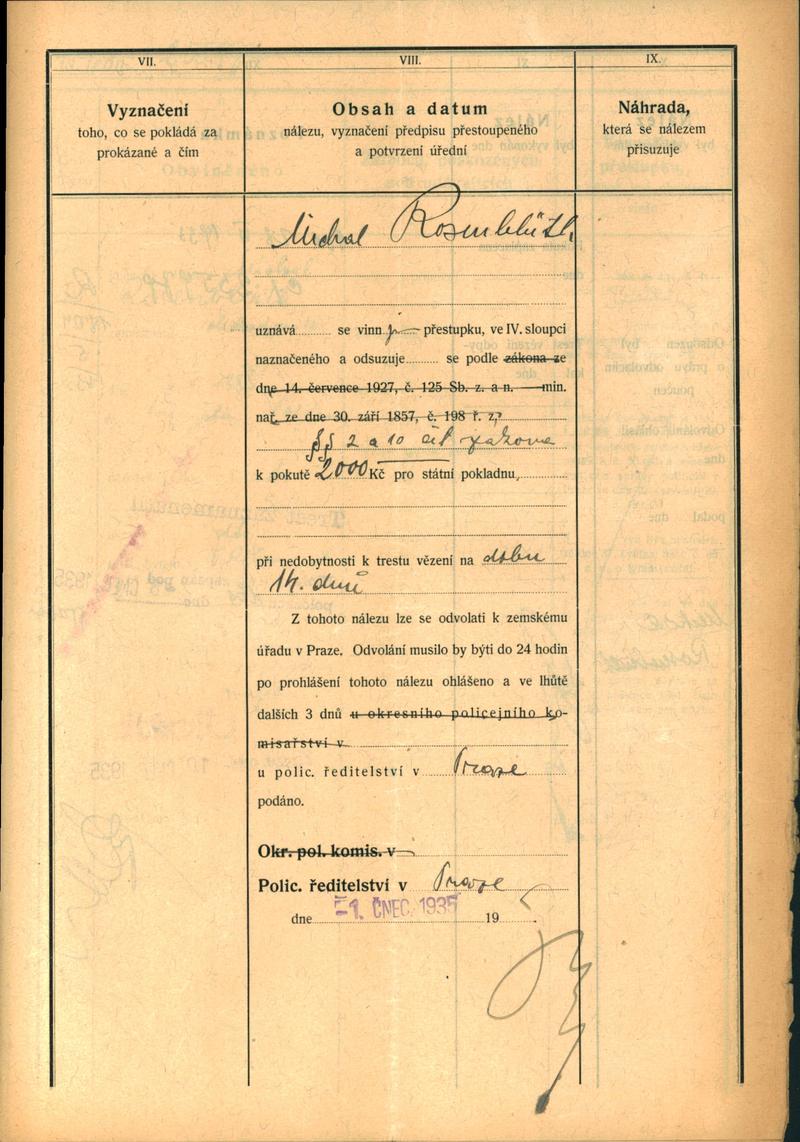 VII.
Vyznačení
toho, co se pokládá za
prokázané a čím
VIII.
Obsah a datum
nálezu, vyznačení předpisu přestoupeného
a potvrzení úřední
IX.
Náhrada,
která se nálezem
přisuzuje
Michal Rosenblüth
uznává se vinn přestupku, ve IV. sloupci
naznačeného a odsuzuje se podle zákona ze
dne 14. července 1927, č. 125 Sb. z. a n. min.
nař. ze dne 30. září 1857, č. 198 ř. z.
§§ 2 a 10 cit zákona
k pokutě 2000 Kč pro státní pokladnu,
při nedobytnosti k trestu vězení na dobu
14. dnů
Z tohoto nálezu lze se odvolati k zemskému
úřadu v Praze. Odvolání musilo by býti do 24 hodin
po prohlášení tohoto nálezu ohlášeno a ve lhůtě
dalších 3 dnů u okresního policejního ko-
misařství v
u polic. ředitelství v Praze
podáno.
Okr. pol. komis. v
Polic. ředitelství v Praze
dne -1. ČNEC. 1935 19